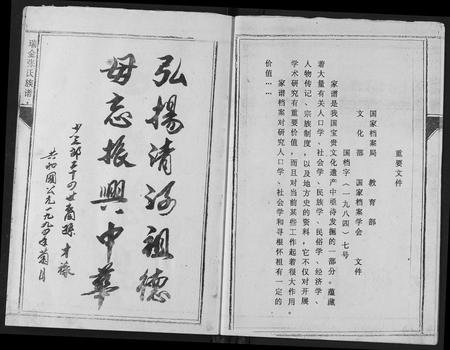 重要文件
国家档案局　教育部
文化部　国家档案学会　文件
国档字（一九八四）七号
家谱是我国宝贵文化遗产中亟待发掘的一部分。蕴藏
着大量有关人口学、社会学、民族学、民俗学、经济学、
人物传记、宗族制度，以及地方史的资料，它不仅对开展
学术研究有重要价值，而且对当前某些工作起着很大作用
家谱档案对研究人口学、社会学和寻根怀祖有一定的
价值……
弘揚清河祖德
毋忘振興中華
共和國公元一九九四年菊月
瑞金张氏族谱